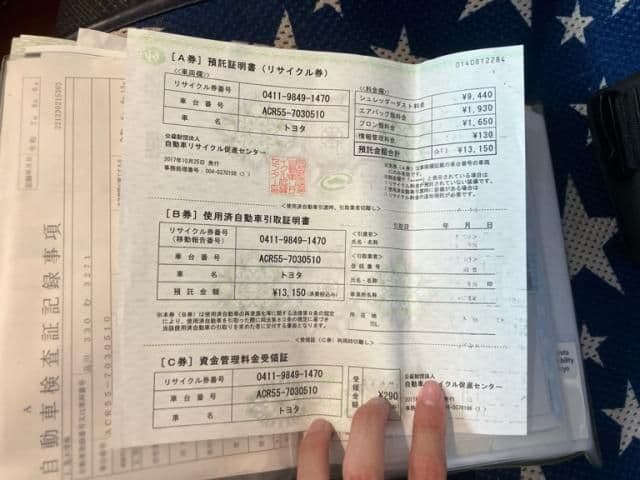 [A券] 預託証明書（リサイクル券）
0140812284
<<車両欄>>
リサイクル券番号 0411-9849-1470
車台番号 ACR55-7030510
車名 トヨタ
<<料金欄>>
シュレッダーダスト料金 ¥9,440
エアバッグ類料金 ¥1,930
フロン類料金 ¥1,650
情報管理料金 ¥130
預託金額合計 ¥13,150
公益財団法人
自動車リサイクル促進センター
2017年10月25日 発行
[B券] 使用済自動車引取証明書
リサイクル券番号
(移動報告番号) 0411-9849-1470
車台番号 ACR55-7030510
車名 トヨタ
預託金額 ¥13,150 (消費税込み)
引取日 年 月 日
<引渡者>
氏名・名称
<引取業者>
登録番号
氏名・名称
事業所名称
所在地
TEL
[C券] 資金管理料金受領証
リサイクル券番号 0411-9849-1470
車台番号 ACR55-7030510
車名 トヨタ
受領金額 ¥290
公益財団法人
自動車リサイクル促進センター
A 自動車検査証記録事項
ACR55-7030510